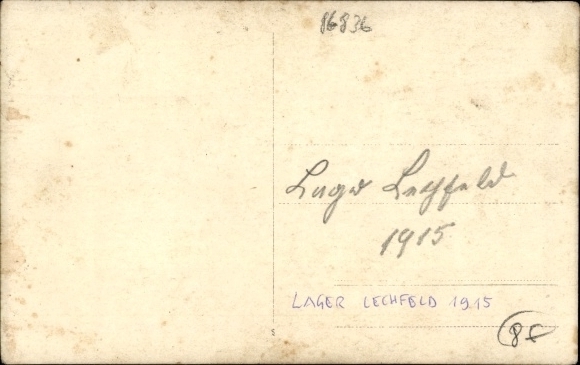 86836
Lager Lechfeld
1915
LAGER LECHFELD 1915
8f